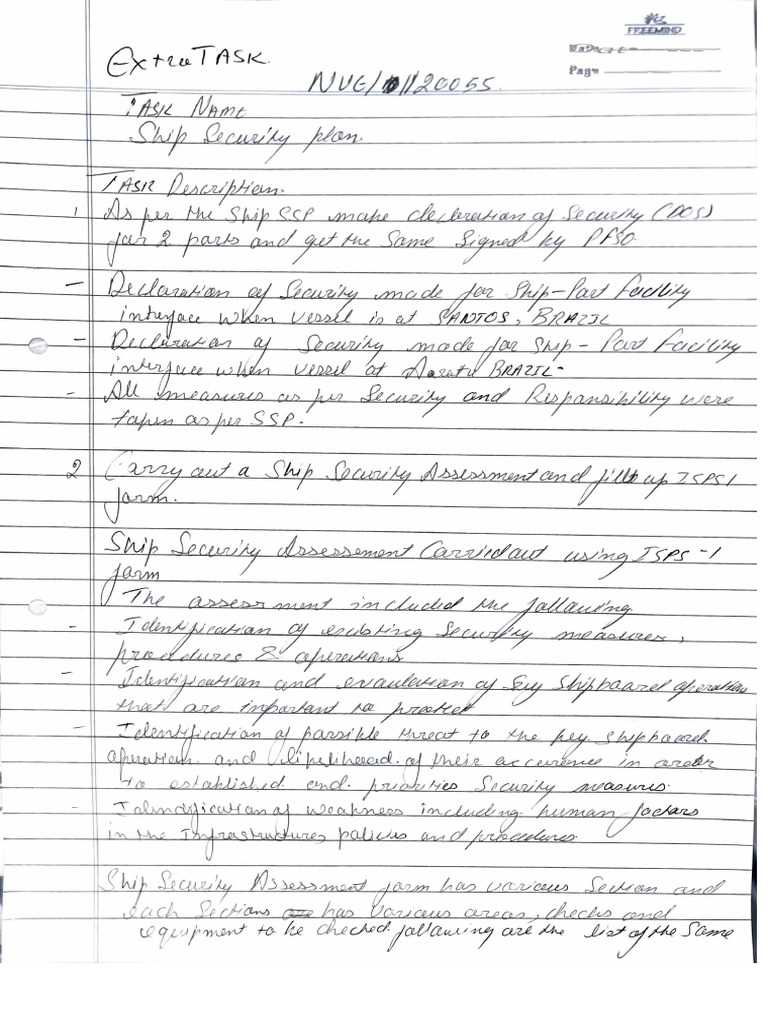 FREEMIND
Page
Extra TASK.
NUE/01/20055.
TASK NAME
Ship Security plan.
TASK Description.
1 As per the ship SSP make declaration of Security (DOS)
for 2 ports and get the Same Signed by PFSO.
- Declaration of Security made for Ship-Port Facility
interface when vessel is at SANTOS, BRAZIL
- Declaration of Security made for Ship - Port Facility
interface when vessel at Aaratu BRAZIL-
- All measures as per Security and Responsibility were
taken as per SSP.
2 Carry out a Ship Security Assessment and fill up ISPS1
form.
Ship Security Assessement Carried out using ISPS-1
form
The assessment included the following
- Identification of existing Security measures,
procedures & operations
- Identification and evaulation of key Shipboard operation
that are important to protect
- Identification of possible threat to the key shipboard
operation and likelihood of their occurence in order
to established and priorities Security measures.
- Idendification of weakness including human factors
in the Infrastructures policies and procedures.
Ship Security Assessment form has various Section and
each Sections has various areas, checks and
equipment to be checked following are the list of the Same